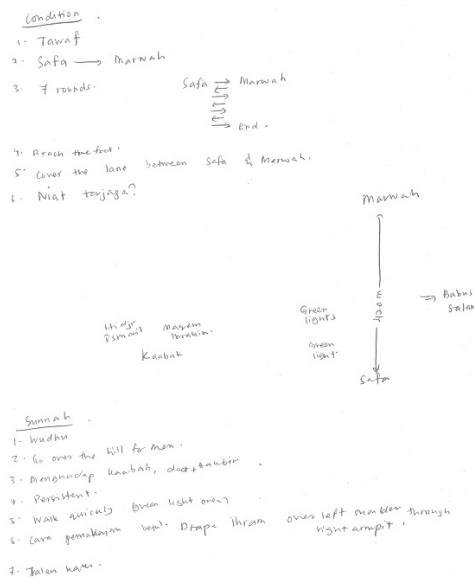 Condition.
1. Tawaf
2. Safa → Marwah
3. 7 rounds.
Safa → Marwah
→ End.
4. Reach the foot.
5. Cover the lane between Safa & Marwah.
6. Niat terjaga?
Marwah
→ Babus Salam
Green lights
Green light.
Safa
Hidjr Ismail
Maqam Ibrahim.
Kaabah
Sunnah.
1. Wudhu
2. Go over the hill for men.
3. Menghadap kaabah, doa, takbir.
4. Persistent.
5. Walk quickly green light area?
6. Cara pemakaian betul. Drape ihram over left shoulder through right armpit.
7. Jalan